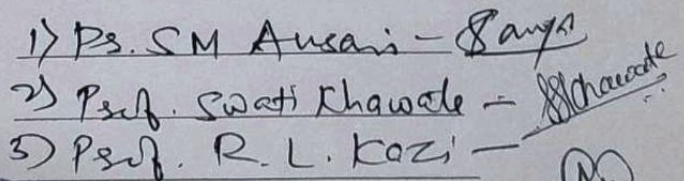 1) Dr. SM Ansari -
2) Prof. Swati Khawale - SSKhawale
3) Prof. R. L. Kazi -